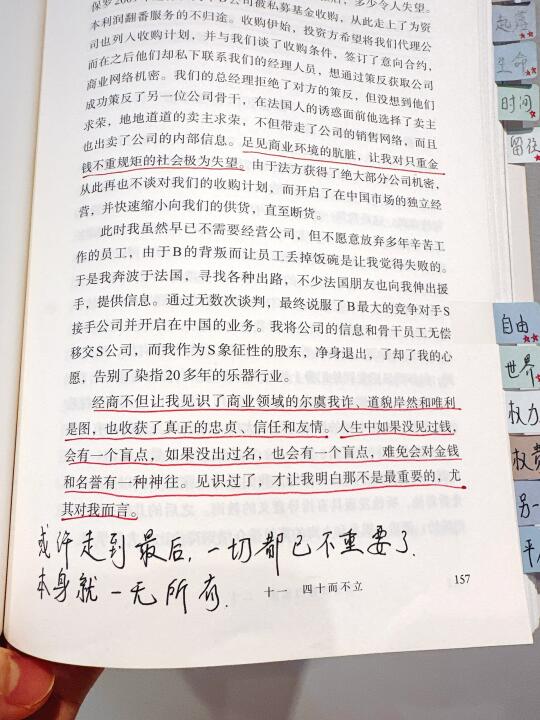 本利润翻番服务的不归途。收购伊始，投资方希望将我们代理公
司也列入收购计划，并与我们谈了收购条件，签订了意向合约，
而在之后他们却私下联系我们的经理人员，想通过策反获取公司
商业网络机密。我们的总经理拒绝了对方的策反，但没想到他们
成功策反了另一位公司骨干，在法国人的诱惑面前他选择了卖主
求荣，地地道道的卖主求荣，不但带走了公司的销售网络，而且
也出卖了公司的内部信息。足见商业环境的肮脏，让我对只重金
钱不重规矩的社会极为失望。由于法方获得了绝大部分公司机密，
从此再也不谈对我们的收购计划，而开启了在中国市场的独立经
营，并快速缩小向我们的供货，直至断货。
此时我虽然早已不需要经营公司，但不愿意放弃多年辛苦工
作的员工，由于B的背叛而让员工丢掉饭碗是让我觉得失败的。
于是我奔波于法国，寻找各种出路，不少法国朋友也向我伸出援
手，提供信息。通过无数次谈判，最终说服了B最大的竞争对手S
接手公司并开启在中国的业务。我将公司的信息和骨干员工无偿
移交S公司，而我作为S象征性的股东，净身退出，了却了我的心
愿，告别了染指20多年的乐器行业。
经商不但让我见识了商业领域的尔虞我诈、道貌岸然和唯利
是图，也收获了真正的忠贞、信任和友情。人生中如果没见过钱，
会有一个盲点，如果没出过名，也会有一个盲点，难免会对金钱
和名誉有一种神往。见识过了，才让我明白那不是最重要的，尤
其对我而言。
或许走到最后，一切都已不重要了.
本身就一无所有.
十一 四十而不立
157
起落
生命
时间
自由
世界
权力
另一